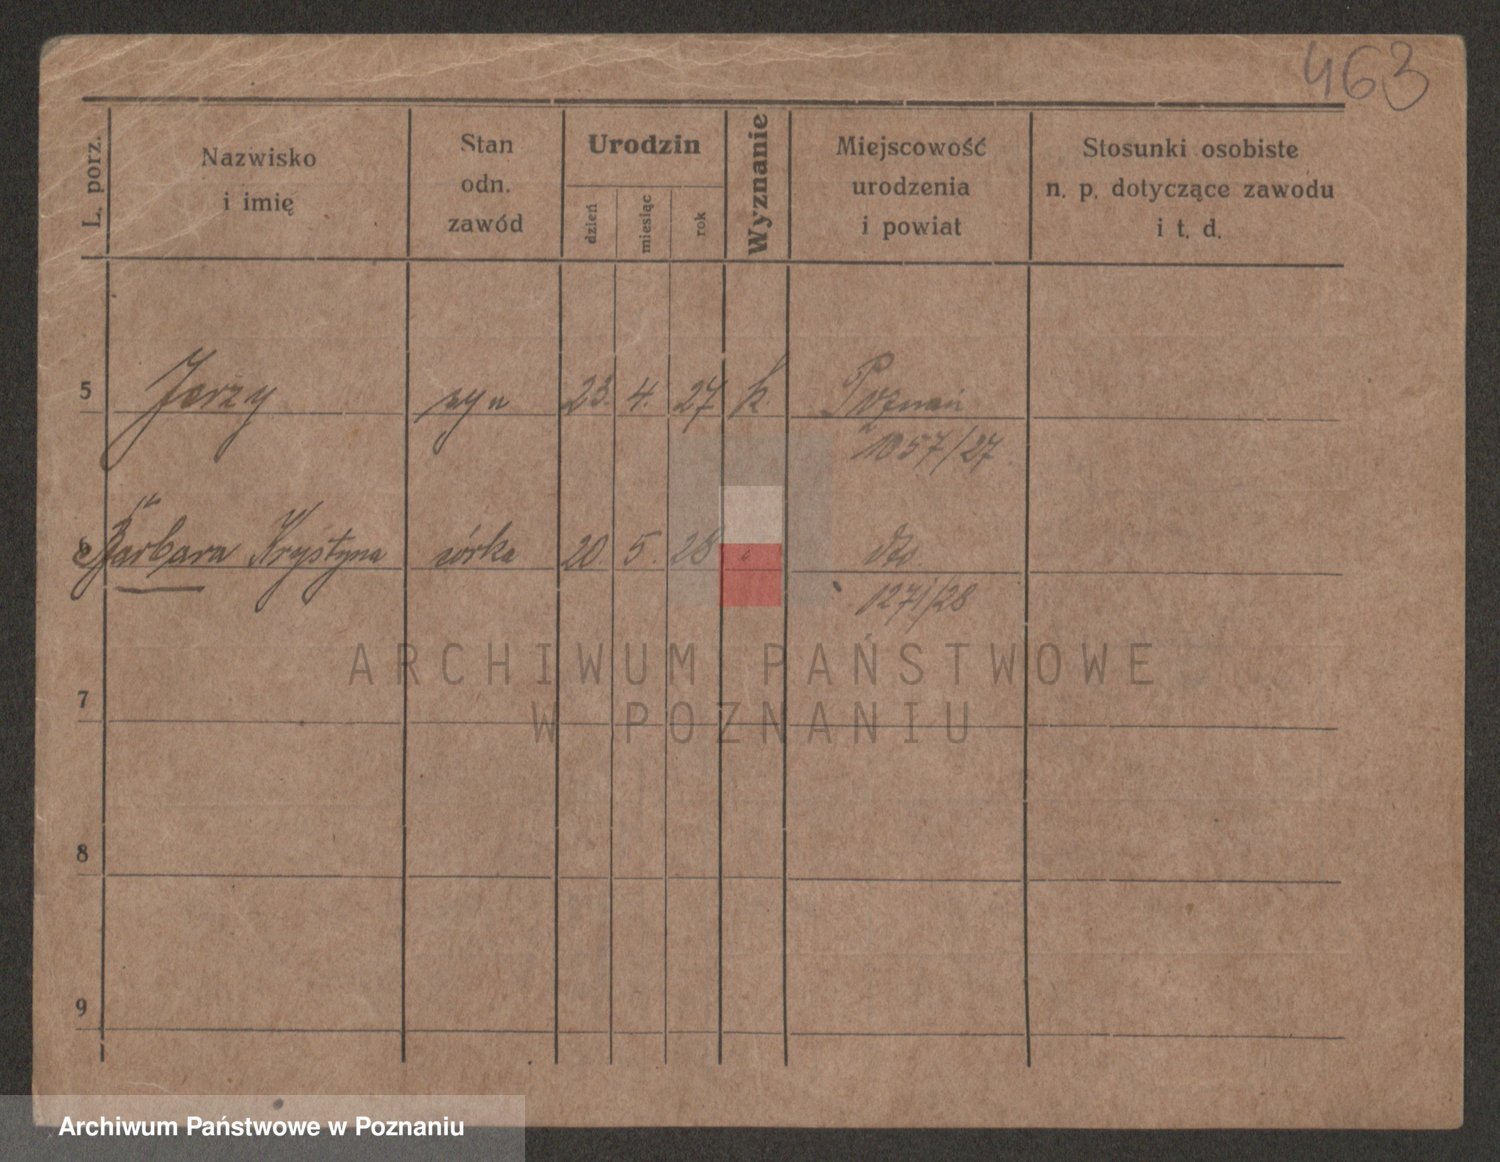 463
L. porz.
Nazwisko
i imię
Stan
odn.
zawód
Urodzin
dzień
miesiąc
rok
Wyznanie
Miejscowość
urodzenia
i powiat
Stosunki osobiste
n. p. dotyczące zawodu
i t. d.
5 Jerzy syn 23. 4. 27 k. Poznań
1057/27
6 Barbara Krystyna córka 20. 5. 28 dto.
1271/28
ARCHIWUM PAŃSTWOWE
W POZNANIU
7
8
9
Archiwum Państwowe w Poznaniu